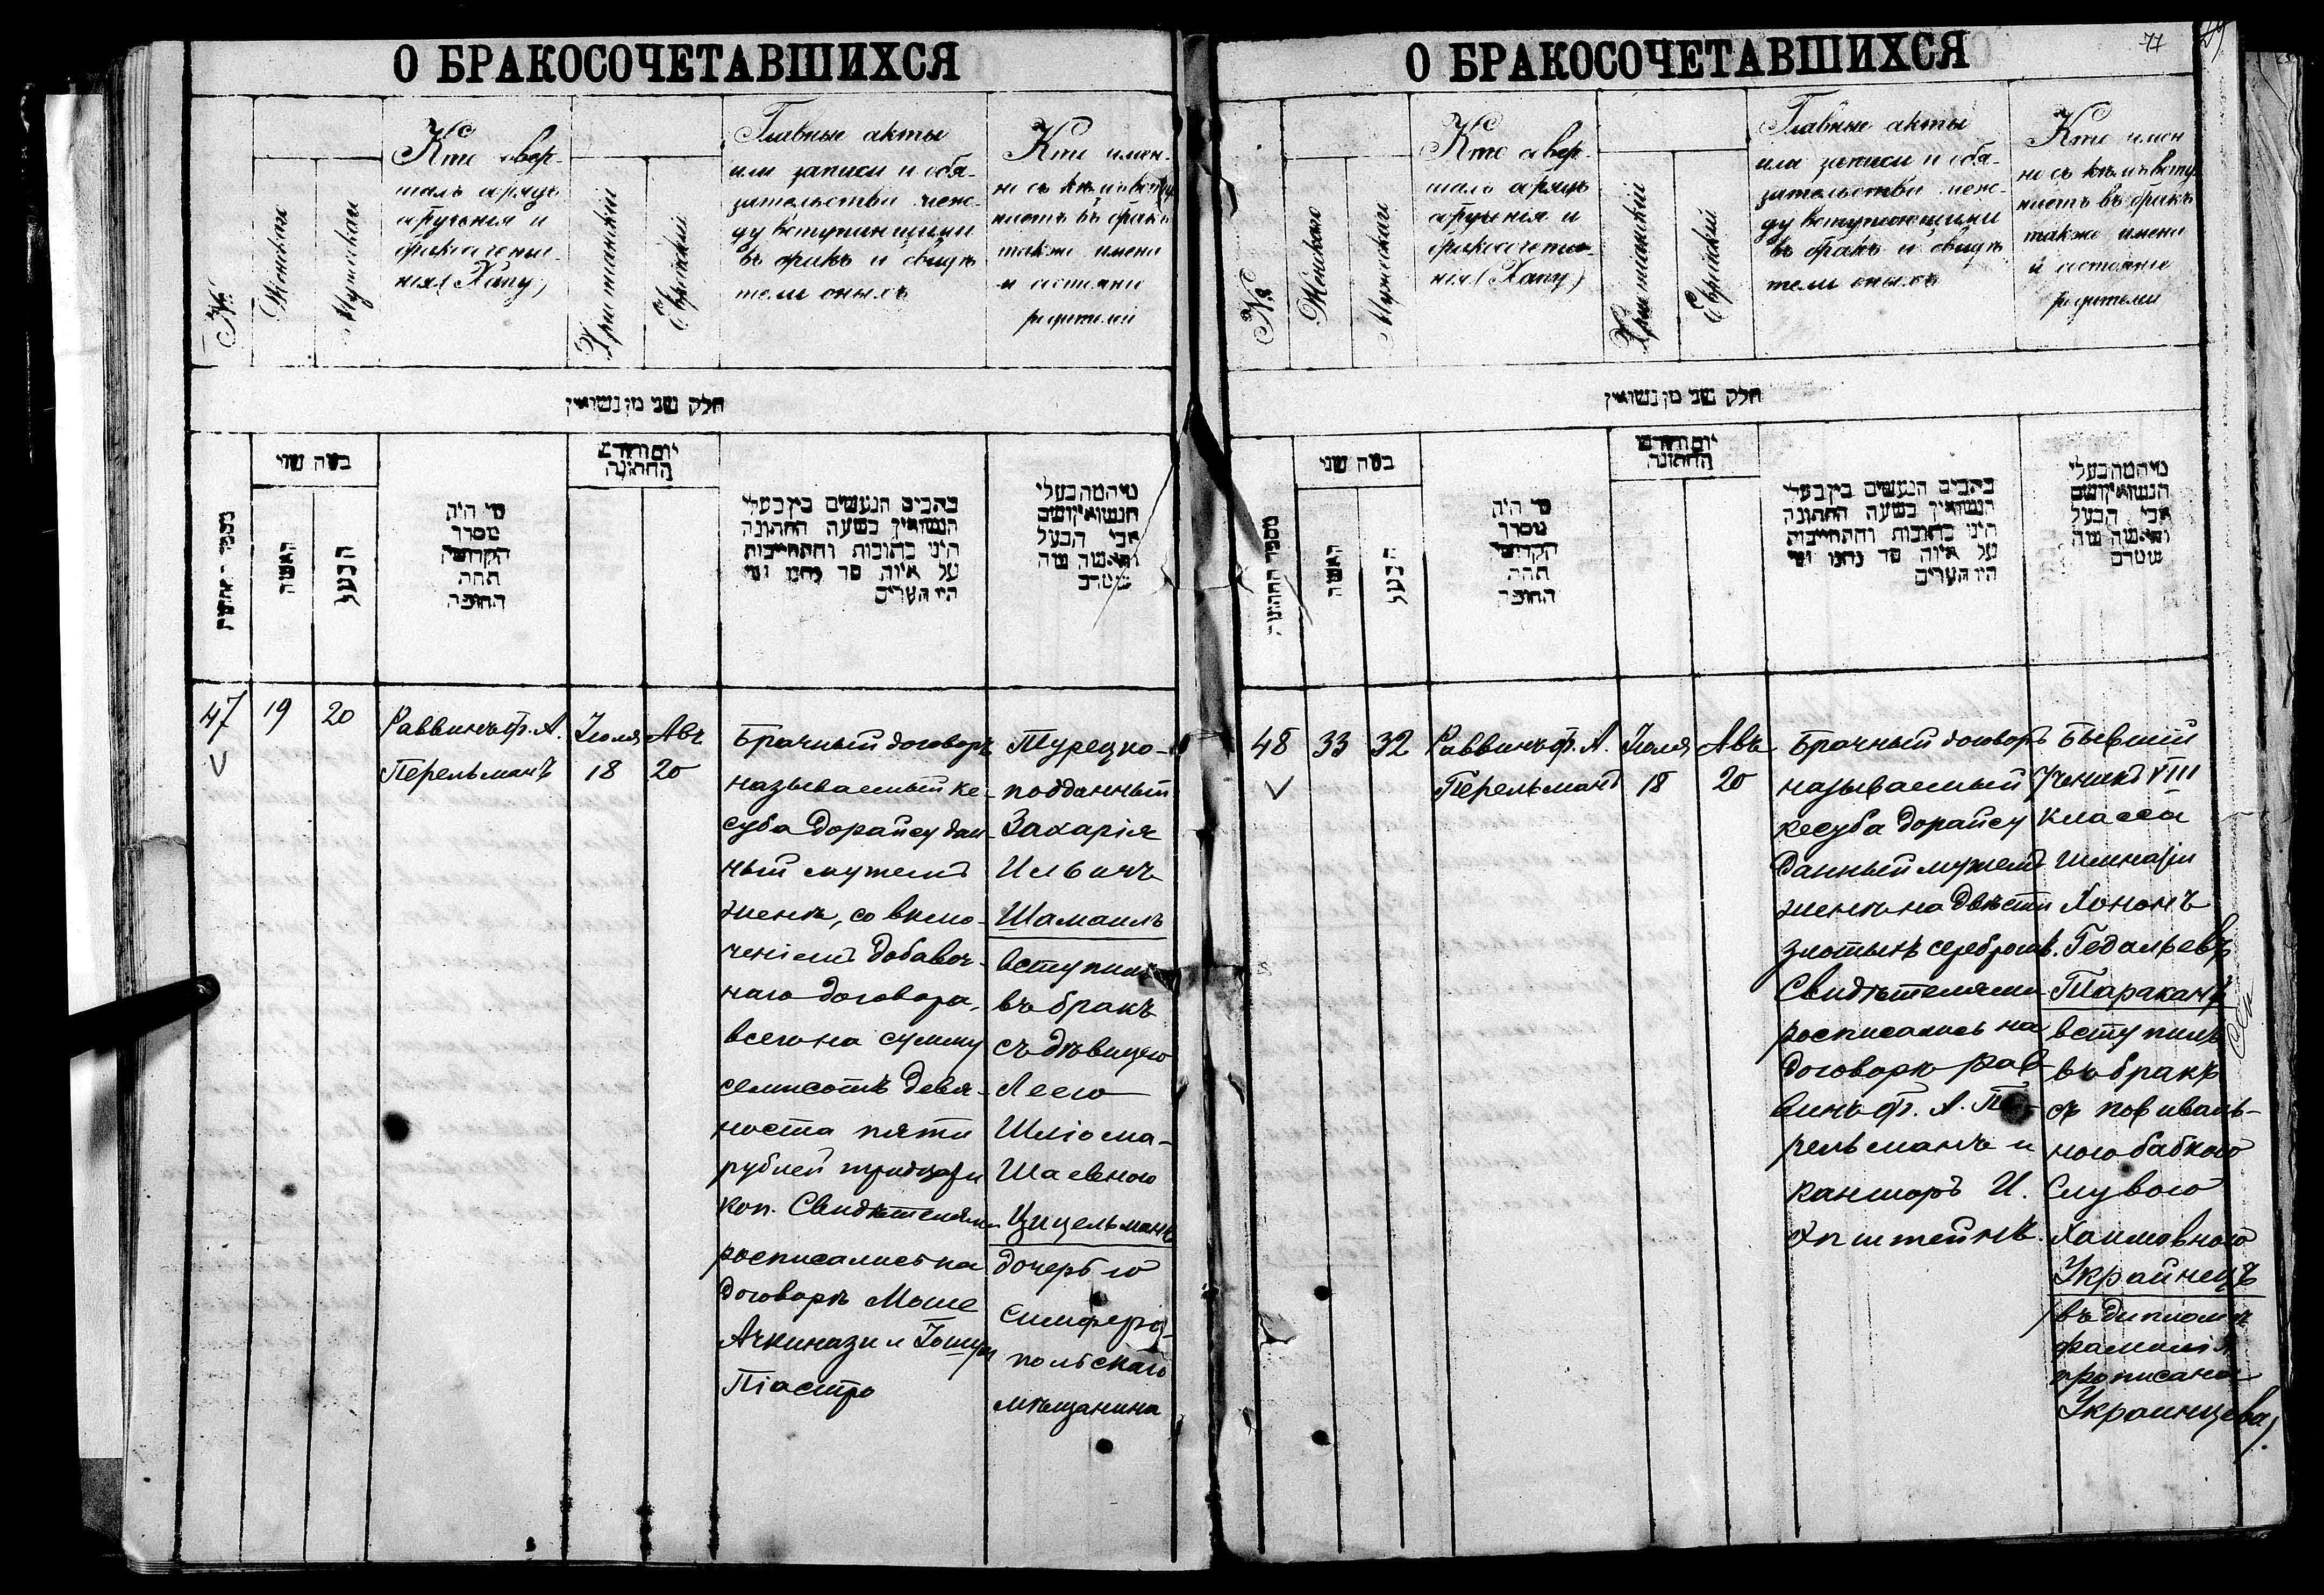 О БРАКОСОЧЕТАВШИХСЯ
№
Женская
Мужеская
Кто совер-
шалъ обрядъ
обрученія и
бракосочета-
нія (Хупу)
Христіанскій
Еврейскій
Главные акты
или записи и обя-
зательства меж-
ду вступающими
въ бракъ и свидѣ-
тели оныхъ
Кто имен-
но съ кѣмъ всту-
паетъ въ бракъ
также имена
и состояніе
родителей
חלק שני מן נשואין
מספר החתונה
כמה שני
האשה
הבעל
מי היה
מסדר
הקדושי
תחת
החופה
יום וחדש
החתונה
כתבים הנעשים בין בעלי
הנשואין בשעה החתונה
היינו כתובות והתחייבות
על איזה סך נתנו ומי
היו העדים
מי המה בעלי
הנשואין ושם
אבי הבעל
והאשה ומה
מטרם
47
19
20
Раввинъ Ф. А.
Перельманъ
Іюля
18
Авъ
20
Брачный договоръ
называемый ке-
суба дорайсу дан-
ный мужемъ
женѣ, со вклю-
ченіемъ добавоч-
наго договора,
всего на сумму
семисотъ девя-
носта пяти
рублей тридцати
коп. Свидѣтелями
росписались на
договорѣ Моше
Ачкинази и Іошуа
Піастро
Турецко-
подданный
Захарія
Ильичъ
Шамаилъ
вступилъ
въ бракъ
съ дѣвицею
Леею
Шліома-
Шаевною
Цицельманъ
дочерью
Симферо-
польскаго
мѣщанина
О БРАКОСОЧЕТАВШИХСЯ
77
№
Женская
Мужеская
Кто совер-
шалъ обрядъ
обрученія и
бракосочета-
нія (Хупу)
Христіанскій
Еврейскій
Главные акты
или записи и обя-
зательства меж-
ду вступающими
въ бракъ и свидѣ-
тели оныхъ
Кто имен
но съ кѣмъ всту
паетъ въ бракъ
также имена
и состояніе
родителей
חלק שני מן נשואין
מספר החתונה
כמה שני
האשה
הבעל
מי היה
מסדר
הקדושי
תחת
החופה
יום וחדש
החתונה
כתבים הנעשים בין בעלי
הנשואין בשעה החתונה
היינו כתובות והתחייבות
על איזה סך נתנו ומי
היו העדים
מי המה בעלי
הנשואין ושם
אבי הבעל
והאשה ומה
מטרם
48
33
32
Раввинъ Ф. А.
Перельманъ
Іюля
18
Авъ
20
Брачный договоръ
называемый
кесуба дорайсу
данный мужемъ
женѣ на двѣсти
злотыхъ серебромъ.
Свидѣтелями
росписались на
договорѣ рав-
винъ Ф. А. Пе-
рельманъ и
канторъ И.
Эпштейнъ.
Бывшій
Ученикъ VIII
класса
гимназіи
Хононъ
Гедальевъ
Тараканъ
вступилъ
въ бракъ
съ повиваль-
ною бабкою
Слувою
Хаимовною
Украйнецъ
(въ дипломѣ
фамилія
прописана
Украинцева).